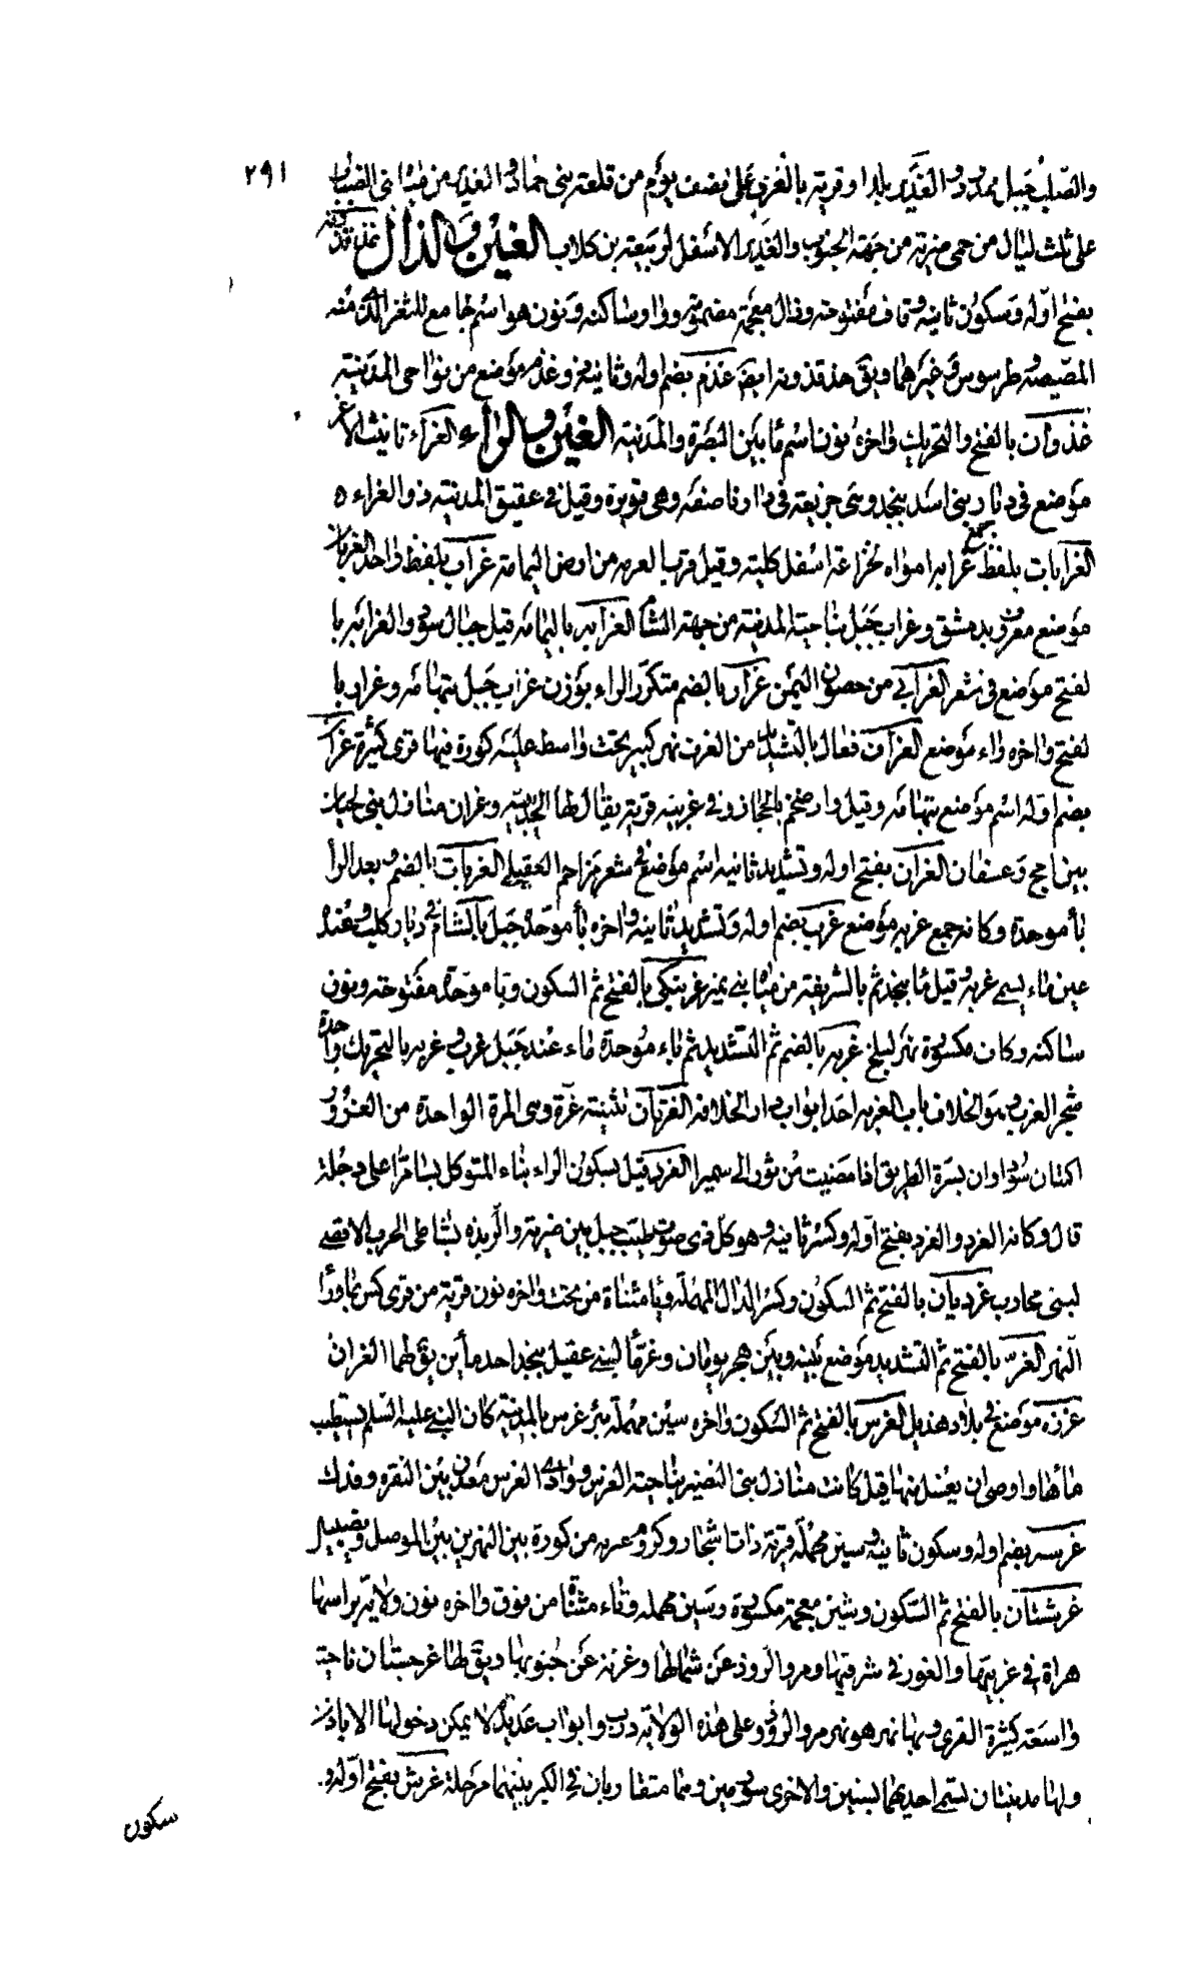 ٢٩١
والصلب جبل ممدود الغدير بلد او قرية بالغرب على نصف يوم من قلعة بني حماد و الغدير من مياه بني الضباب
على ثلث ليال من حمى ضرية من جهة الجنوب والغدير الاسفل لربيعة بن كلاب الغين و الذال غذقذونة
بفتح اوله وسكون ثانيه وقاف مفتوحة وذال معجمة مضمومة وواو ساكنه ونون هو اسم جامع للثغر الذي منه
المصيصة وطرسوس وغيرهما ويق خذقذونه ايضا غذم بضم اوله وثانيه وغذم موضع من نواحي المدينة
غذوان بالفتح والتحريك واخره نون اسم ما بين البصرة والمدينة الغين و الراء الغراء تانيث الاغر
موضع في ديار بني اسد بنجد وهي جريعة في ديار ناصفه وهي نويرة وقيل في عقيق المدينة ذو الغراء ه
الغرابات بلفظ جمع غرابه امواه لخزاعة اسفل كلية وقيل قرب العرمه من ارض اليمامة غراب بلفظ واحد الغربان
موضع معروف بدمشق وغراب جبل بناحية المدينة من جهة الشام الغرابه باليمامه قيل جبال سود والغرابه با
لفتح موضع في شعر الغرابي من حصون اليمن غرار بالضم متكرر الراء بوزن غراب جبل بتهامه وغراب با
لفتح واخره زاء موضع الغراف فعال بالتشديد من الغرف نهر كبير تحت واسط عليه كورة فيها قرى كثيرة غران
بضم اوله اسم موضع بتهامه وقيل واد ضخم بالحجاز وفي غربيه قرية يقال لها الحديبية وغران منازل بني لحيان
بين امج وعسفان الغران بفتح اوله وتشديد ثانيه اسم موضع في شعر مزاحم العقيلي الغربات بالضم وبعد الرا
باء موحدة وكانه جمع غربه موضع غرب بضم اوله وتشديد ثانيه واخره باء موحدة جبل بالشام في ديار كلب وعنده
عين ماء يسمى غربه وقيل ماء بنجد ثم بالشريفة من مياه بني نمير غربنكى بالفتح ثم السكون وباء موحدة مفتوحة ونون
ساكنه وكاف مكسورة نهر لبلخ غربه بالضم ثم التشديد ثم باء موحدة ماء عند جبل غرب و غربه بالتحريك واحدة
شجر الغرب وهو الخلاف باب الغربه احد ابواب دار الخلافه الغرتان تثنية غرة وهي المرة الواحدة من الغرور
اكمتان سوداوان يسرة الطريق اذا مضيت من توز الى سميرا الغرد قيل بسكون الراء بناء المتوكل بسامرا على دجلة
قال وكانه الغرد والغرد بفتح اوله وكسر ثانيه وهو كل ذي صوت طيب جبل بين ضرية والربذه بشاطى الحريب الاقصى
لبني محارب غرديان بالفتح ثم السكون وكسر الدال المهملة وياء مثناة من تحت واخره نون قرية من قرى كس بماورا
النهر الغر بالفتح ثم التشديد موضع بينه وبين هجر يومان وغر ماء لبني عقيل بنجد احد مائين يق لهما الغران
غرزه موضع في بلاد هذيل الغرس بالفتح ثم السكون واخره سين مهملة بئر غرس بالمدينة كان النبي عليه السلم يستطيب
مائها واوصى ان يغسل منها قيل كانت منازل بني النضير بناحية الغرس ووادي الغرس معدن بين النقره وفدك
غرسه بضم اوله وسكون ثانيه وسين مهملة قرية ذات اشجار وكروم وعربه من كورة بين النهرين بين الموصل ونصيبين
غرشتان بالفتح ثم السكون وشين معجمة مكسورة وسين مهمله وتاء مثناة من فوق واخره نون ولاية براسها
هراة في غربيها والغور في شرقيها ومرو الروذ عن شمالها وغزنه عن جنوبها ويق لها غرجستان ناحية
واسعة كثيرة القرى وبها نهر هو نهر مرو الروذ وعلى هذه الولاية دروب وابواب عديدة لا يمكن دخولها الا باذن
ولها مدينتان تسمى احديهما بشين والاخرى سورمين وهما متقاربان في الكبر بينهما مرحلة غرش بفتح اوله و
سكون